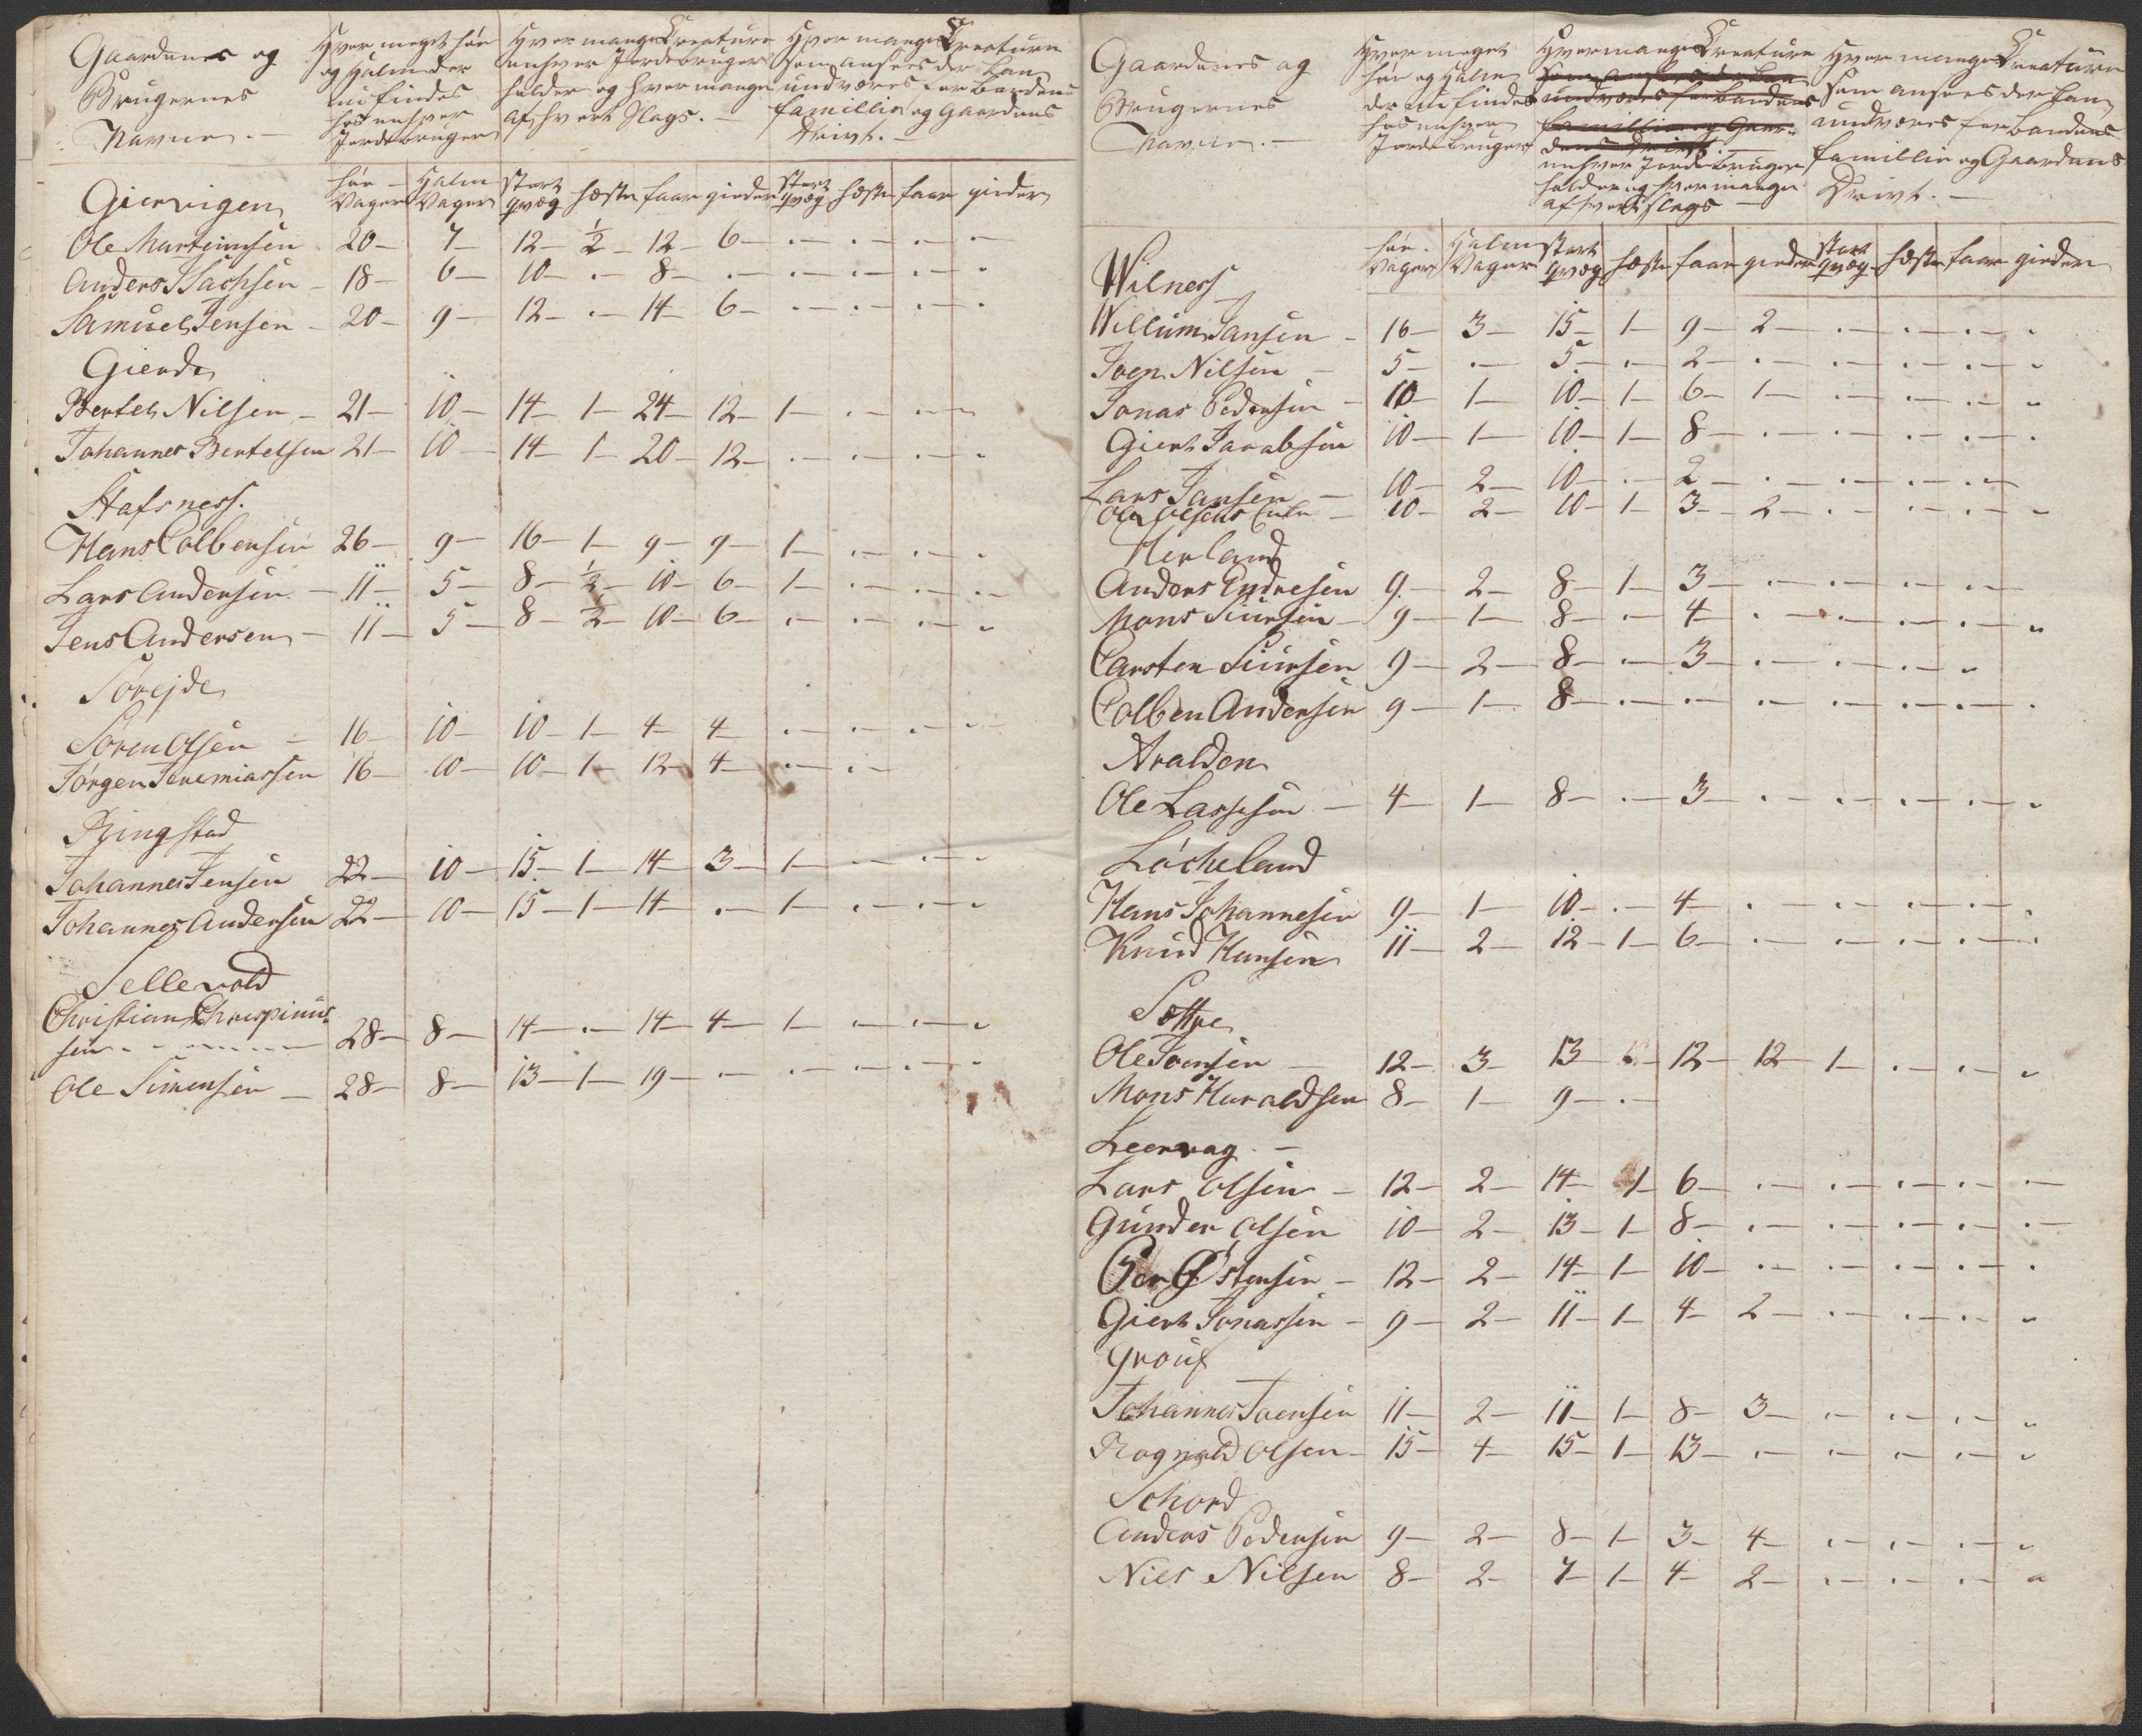 Gaardenes og
Brugernes
Navne. —
Hvor meget høe
og Halm der
nu findes
hos enhver
Jordbruger
Hvor mange Creature
enhver Jordebruger
holder og hvor mange
af hvert Slags. —
Hvor mange Creature
som ansees der kan
undværes for Bondens
Familie og Gaardens
Drivt. —
høe Vager | Halm Vager | stort qvæg | hæste | faar | gieder | stort qvæg | hæste | faar | gieder
Giervigen
Ole Marteinsen 20 — 7 — 12 — ½ — 12 — 6 — . — . — . — . —
Anders Isachsen — 18 — 6 — 10 — . — 8 — . — . — . — . — .
Samuel Jensen — 20 — 9 — 12 — . — 14 — 6 — . — . — . — .
Gierde
Bertel Nilsen — 21 — 10 — 14 — 1 — 24 — 12 — 1 — . — . — . —
Johannes Bertelsen 21 — 10 — 14 — 1 — 20 — 12 — . — . — . — .
Stafsness.
Hans Colbensen 26 — 9 — 16 — 1 — 9 — 9 — 1 — . — . — .
Lars Andersen — 11 — 5 — 8 — ½ — 10 — 6 — 1 — . — . — . —
Jens Andersen — 11 — 5 — 8 — ½ — 10 — 6 — . — . — . — .
Sørejde
Soren Olsen — 16 — 10 — 10 — 1 — 4 — 4 — . — . — . — . —
Jørgen Jeremiassen 16 — 10 — 10 — 1 — 12 — 4 — . — . —
Ringstad
Johannes Jensen 22 — 10 — 15 — 1 — 14 — 3 — 1 — . — . — .
Johannes Andersen 22 — 10 — 15 — 1 — 14 — . — 1 — . — . — .
Sellevold
Christian Chrespinus-
sen — 28 — 8 — 14 — . — 14 — 4 — 1 — . — . — .
Ole Simensen — 28 — 8 — 13 — 1 — 19 — . — . — . — . — .
Gaardenes og
Brugernes
Navne. —
Hvor meget
høe og Halm
der nu findes
hos enhver
Jordebruger
Hvor mange Creature
som ansees der kan
undværes for Bondens
Familie og Gaar-
dens Drivt
enhver Jordebruger
holder og hvor mange
af hvert slags —
Hvor mange Creature
som ansees der kan
undværes for Bondens
Familie og Gaardens
Drivt. —
høe. Vager | Halm Vager | stort qvæg | hæste | faar | gieder | stort qvæg | hæste | faar | gieder
Wilness
Willum Jansen — 16 — 3 — 15 — 1 — 9 — 2 — . — . — . — .
Joen Nilsen — 5 — . — 5 — . — 2 — . — . — . — . — .
Jonas Pedersen — 10 — 1 — 10 — 1 — 6 — 1 — . — . — . — .
Giert Jacobsen 10 — 1 — 10 — 1 — 8 — . — . — . — . — .
Lars Jansen — 10 — 2 — 10 — . — 2 — . — . — . — . —
Ole Olsens Enke — 10 — 2 — 10 — 1 — 3 — 2 — . — . — . — .
Herland
Anders Endresen 9 — 2 — 8 — 1 — 3 — . — . — . — . —
Mons Siursen — 9 — 1 — 8 — . — 4 — . — . — . — . — .
Carsten Siursen 9 — 2 — 8 — . — 3 — . — . — . — .
Colben Andersen 9 — 1 — 8 — . — . — . — . — . — . — .
Aralden
Ole Lassesen — 4 — 1 — 8 — . — 3 — . — . — . — . — .
Løcheland
Hans Johannesen 9 — 1 — 10 — . — 4 — . — . — . — . — .
Knud Hansen 11 — 2 — 12 — 1 — 6 — . — . — . — . — .
Ole Joensen — 12 — 3 — 13 — 12 — 12 — 1 — . — . — .
Mons Haraldsen 8 — 1 — 9 — . —
Leervag. —
Lars Olsen — 12 — 2 — 14 — 1 — 6 — . — . — . — . — . —
Gunder Olsen 10 — 2 — 13 — 1 — 8 — . — . — . — . — . —
Per Østensen — 12 — 2 — 14 — 1 — 10 — . — . — . — . — .
Giert Jonassen — 9 — 2 — 11 — 1 — 4 — 2 — . — . — . — .
Johannes Joensen 11 — 2 — 11 — 1 — 8 — 3 — . — . — . — .
Rognald Olsen — 15 — 4 — 15 — 1 — 13 — . — . — . — . — .
Schord
Anders Pedersen 9 — 2 — 8 — 1 — 3 — 4 — . — . — . — .
Niels Nilsen 8 — 2 — 7 — 1 — 4 — 2 — . — . — . — .